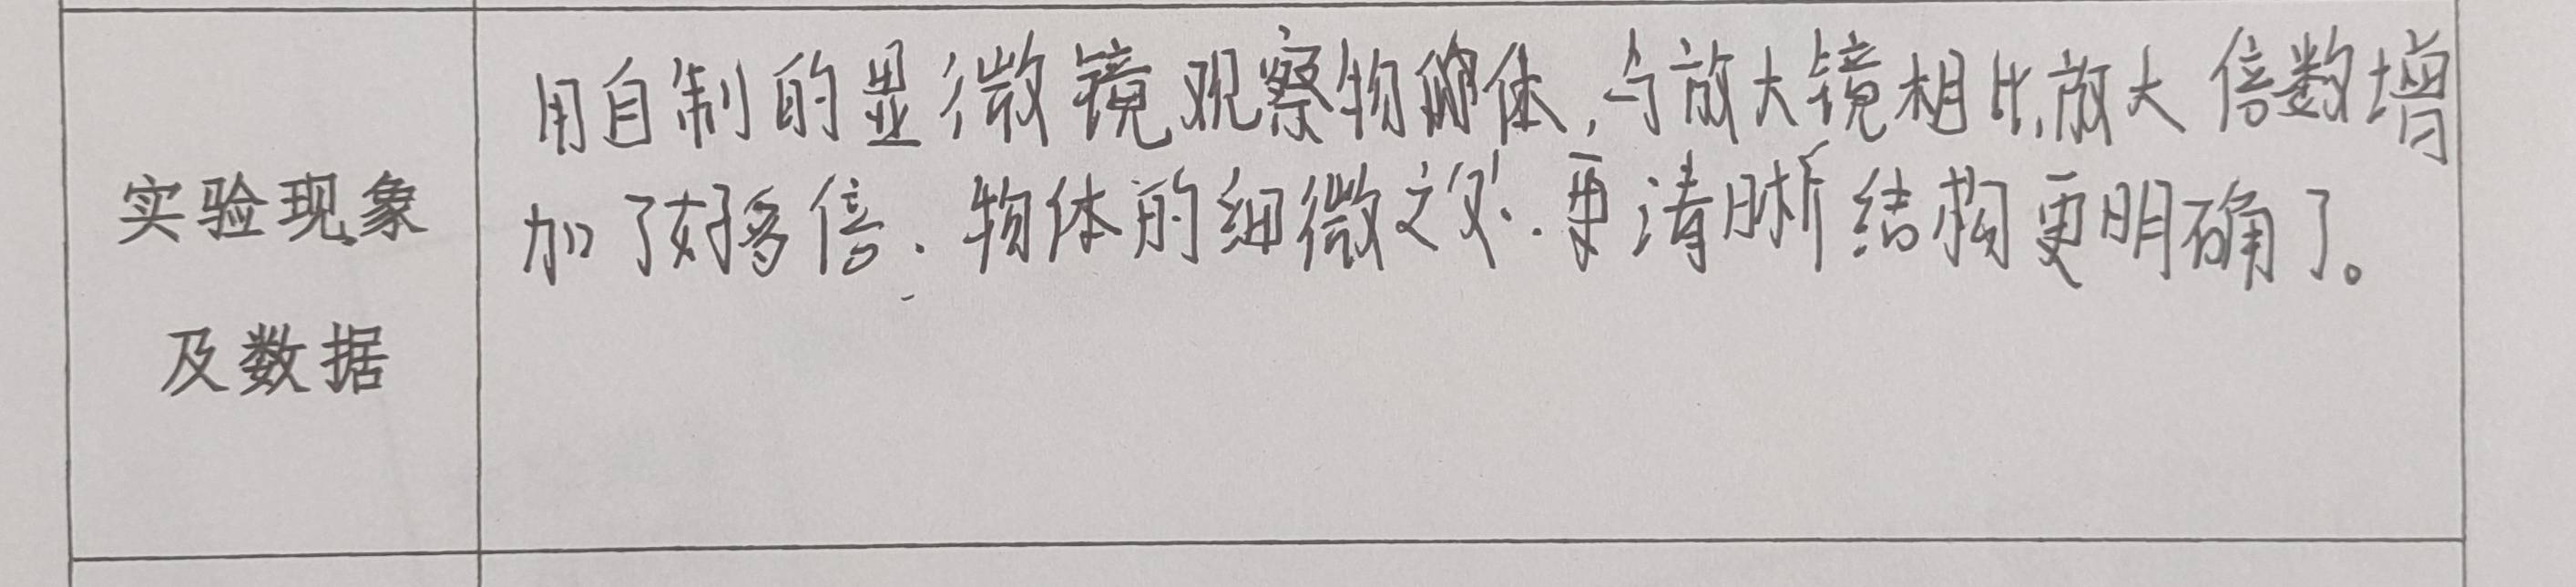 用自制的显微镜观察物体,与放大镜相比,放大倍数增
加了好多倍.物体的细微之处.更清晰结构更明确了。
实验现象
及数据